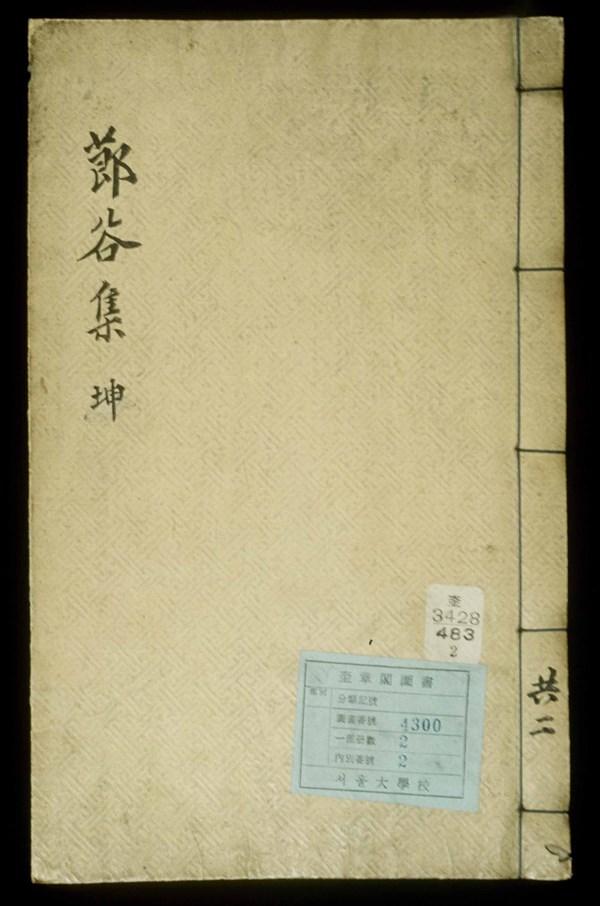 莭谷集 坤
奎
3428
483
2
奎章閣圖書
分類記號
圖書番號 4300
一部冊數 2
內別番號 2
서울大學校
共二